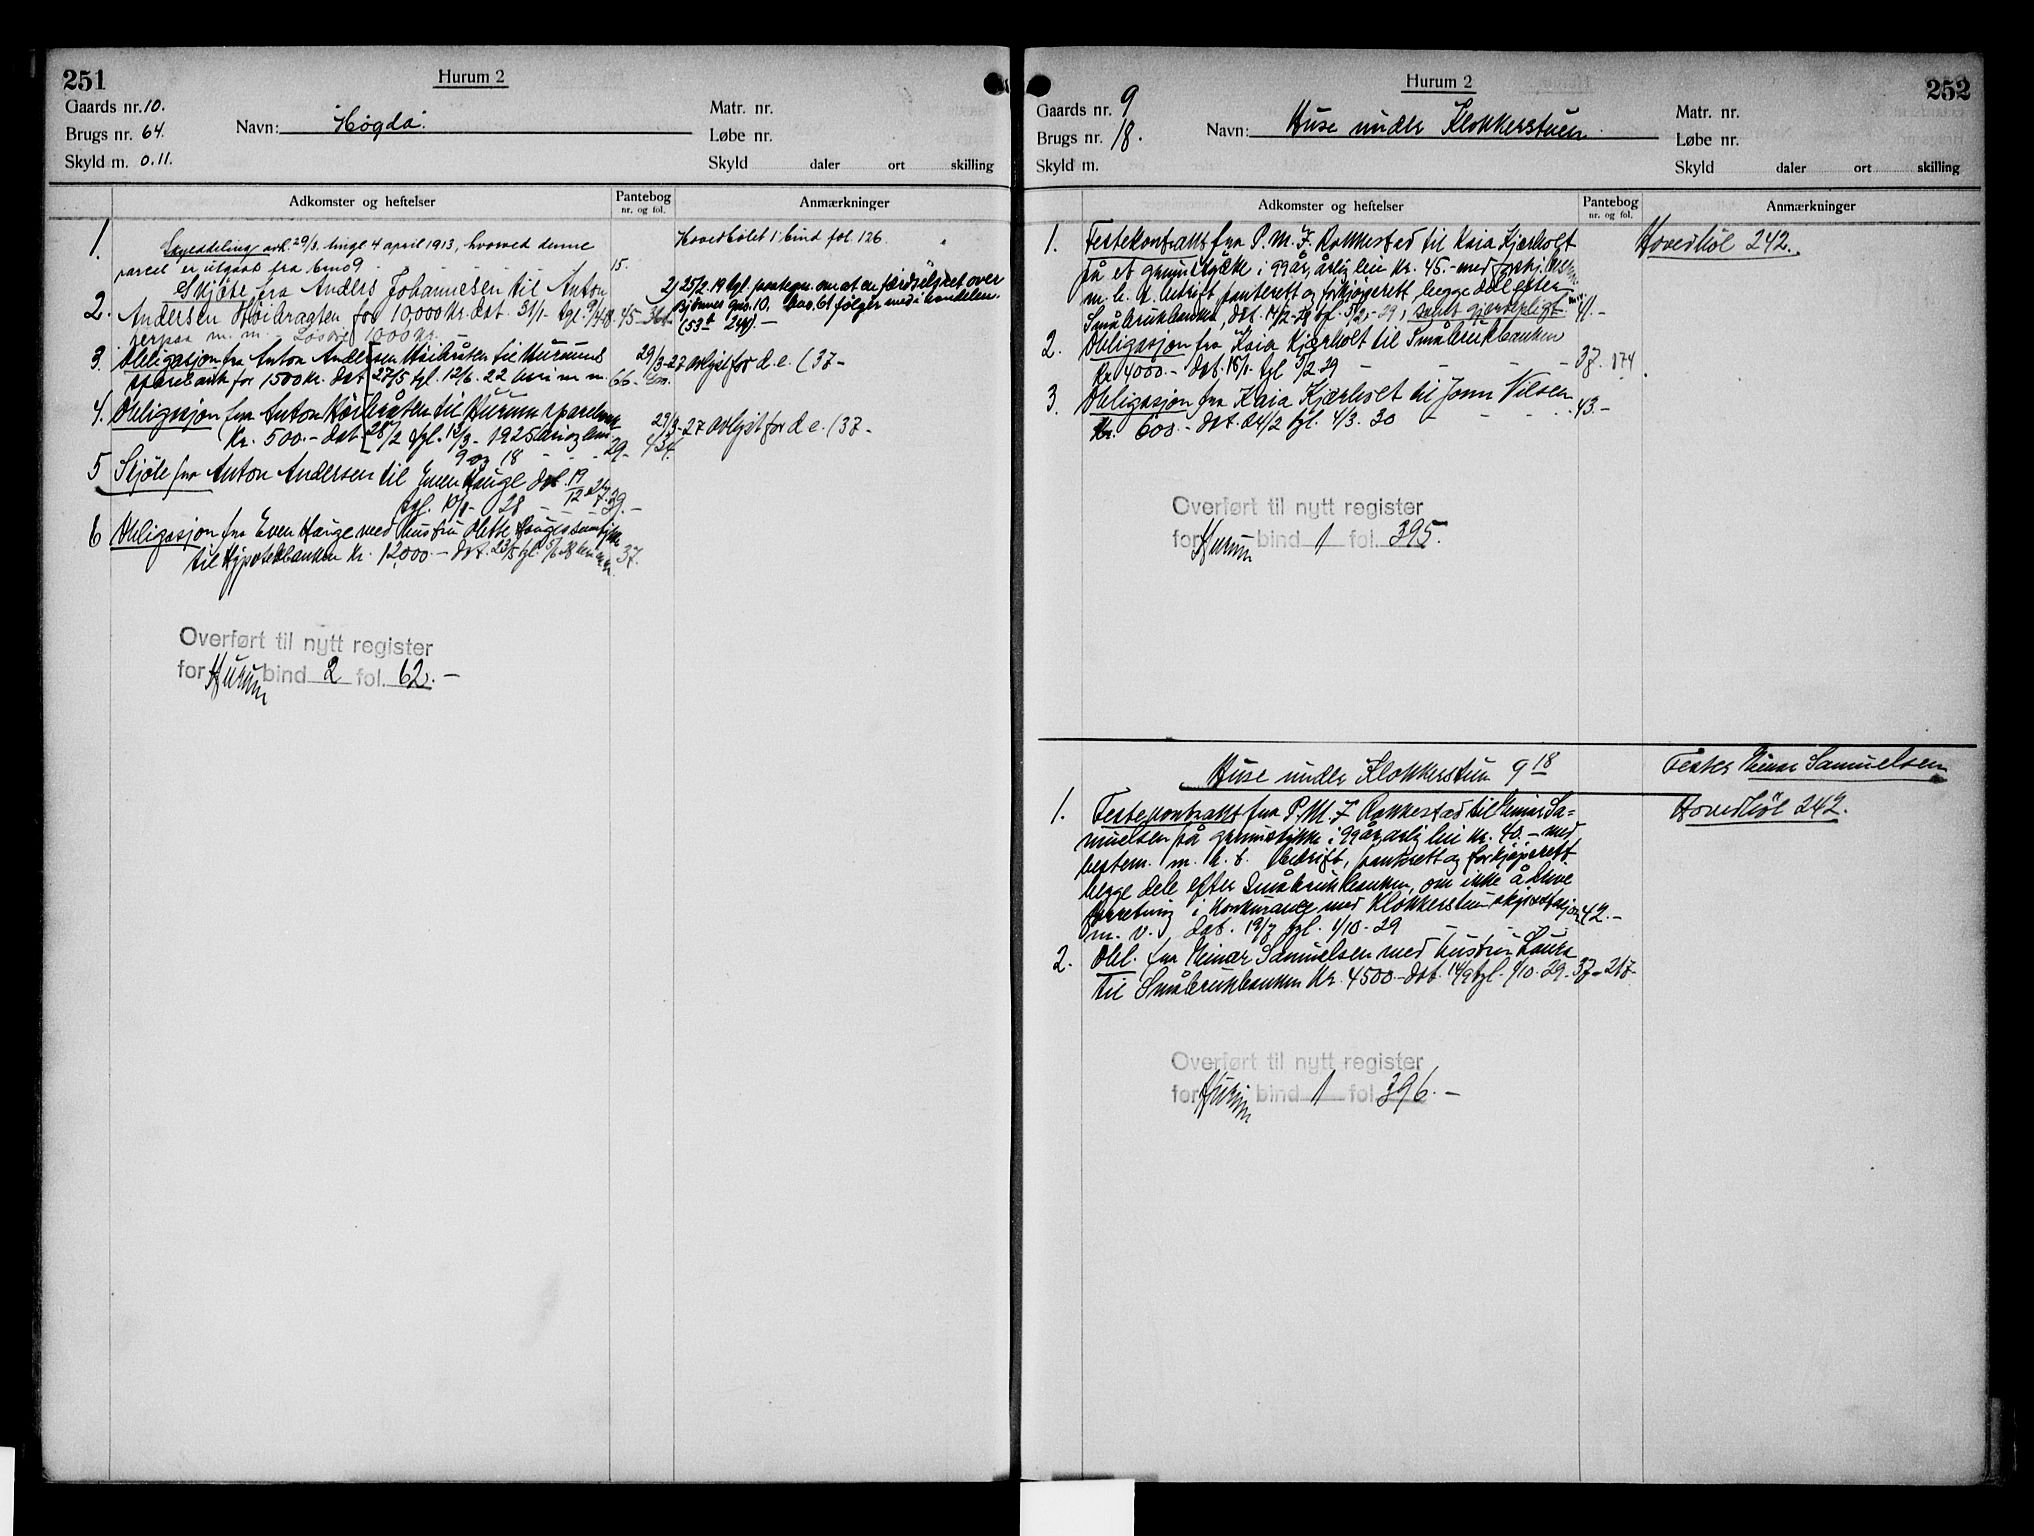 251
Hurum 2
Gaards nr. 10.
Brugs nr. 64.
Skyld m. 0.11.
Navn: Høgda.
Matr. nr.
Løbe nr.
Skyld daler ort skilling
Adkomster og heftelser
Pantebog
nr. og fol.
Anmærkninger
1. Skylddeling avh. 29/3, tingl 4 april 1913, hvorved denne
parcel er utgaat fra bno 9 15.
Hovedbølet 1 bind fol. 126.
2. Skjöte fra Anders Johannesen til Anton
Andersen Höibraaten for 10000 kr. dat. 31/1- tgl.
herpaa m. m. Løsøre 1000 kr.
2) 25/2.19 tgl. paategn. om at en færdselsret over
Björnes gno. 10. bno. 61 følger med i handelen.
(53 244) -
3. Obligasjon fra Anton Andersen Höibråten til Hurums
sparebank for 1500 kr. dat 27/5 tgl. 12/6. 22 m. m. 66-
29/3-27 avlyst for d. e. (37-
4. Obligasjon fra Anton Höibråten til Hurum sparebank
Kr. 500.- dat 28/2 tgl. 12/3- 1925
9 og 18 - - - 29- 434
29/3-27 avlyst for d. e. (37-
5 Skjöte fra Anton Andersen til Even Hauge dat. 19/12-27
tgl. 10/1- 28 - - - 39.-
6 Obligasjon fra Even Hauge med hustru Olette Hauges samtykke
til Hypotekbanken kr. 12,000.- dat. 23/5 tgl. 5/6 28 37.
Overført til nytt register
for Hurum bind 2 fol. 62.-
252
Hurum 2
Gaards nr. 9
Brugs nr. 18.
Skyld m.
Navn: Huse under Klokkerstuen
Matr. nr.
Løbe nr.
Skyld daler ort skilling
Adkomster og heftelser
Pantebog
nr. og fol.
Anmærkninger
1. Festekontrakt fra P. M. F. Rokkestad til Kaia Kjærholt
på et grunnstykke i 99 år, årlig leie kr. 45.- med
m. h. t. bedrift, panterett og forkjøpsrett begge dele efter
Småbrukbanken, dat. 14/2-29 tgl. 5/2,- 29, samt gjerdepligt 41.-
Hovedböl 242.
2. Obligasjon fra Kaia Kjærholt til Småbrukbanken
kr 4000.- dat. 15/1- tgl 5/2 29 - - - 37. 174
3. Obligasjon fra Kaia Kjærholt til Jonn Nilsen
kr. 600.- dat. 24/2 tgl. 4/3. 30 - - - 43.-
Overført til nytt register
for Hurum bind 1 fol. 395.
Huse under Klokkerstuen 9 18
Fester Einar Samuelsen
1. Festekontrakt fra P. M. F Rokkestad til Einar Sa=
muelsen på grunnstykke i 99 år årlig leie kr. 40.- med
bestem. m. h. t. bedrift, panterett og forkjøpsrett
begge dele efter Småbrukbanken, om ikke å drive
forretning i konkurange med Klokkerstuen 42.-
m. v. dat. 19/7 tgl. 1/10-29
Hovedböl 242.
2. Obl. fra Einar Samuelsen med hustru Laura
til Småbrukbanken kr. 4500- dat. 14/9 tgl. 1/10. 29. 37-217-
Overført til nytt register
for Hurum bind 1 fol 396.-